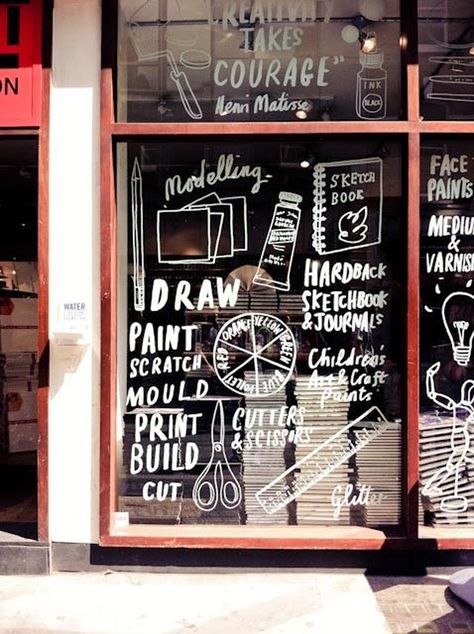 T
ON
"CREATIVITY
TAKES
COURAGE"
Henri Matisse
INK
BLACK
Modelling
SKETCH
BOOK
DRAW
PAINT
SCRATCH
MOULD
PRINT
BUILD
CUT
RED ORANGE YELLOW GREEN BLUE VIOLET
HARDBACK
SKETCHBOOK
& JOURNALS
Children's
Art & Craft
Paints
CUTTERS
& SCISSORS
Glitter
FACE
PAINTS
MEDIUM
&
VARNISH
WATER